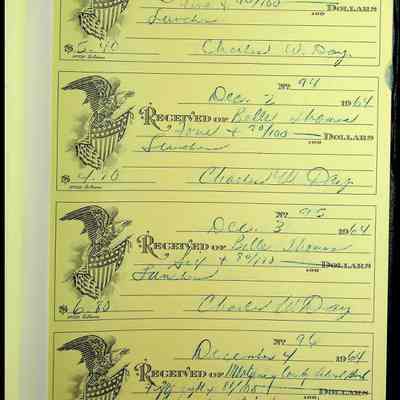 Five + 40/100 DOLLARS
Lunches
$5.40 Charles W. Day
No 94
Dec. 2 1964
RECEIVED OF Belle Thomas
Four + 90/100 DOLLARS
Lunches
$4.90 Charles W Day
No 95
Dec. 3 1964
RECEIVED OF Belle Thomas
Six + 80/100 DOLLARS
Lunches
$6.80 Charles W Day
No 96
December 4 1964
RECEIVED OF County School
Fifty 88/100 DOLLARS